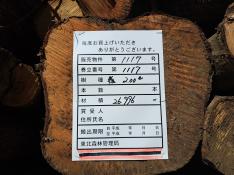 毎度お買上げいただき
ありがとうございます。
販売物件 第 1117 号
巻立番号 第 1117 号
樹種 2.00m
本数 本
材積 26.996 m³
買受人
住所氏名
搬出期限 自 平成 年 月 日
至 平成 年 月 日
東北森林管理局